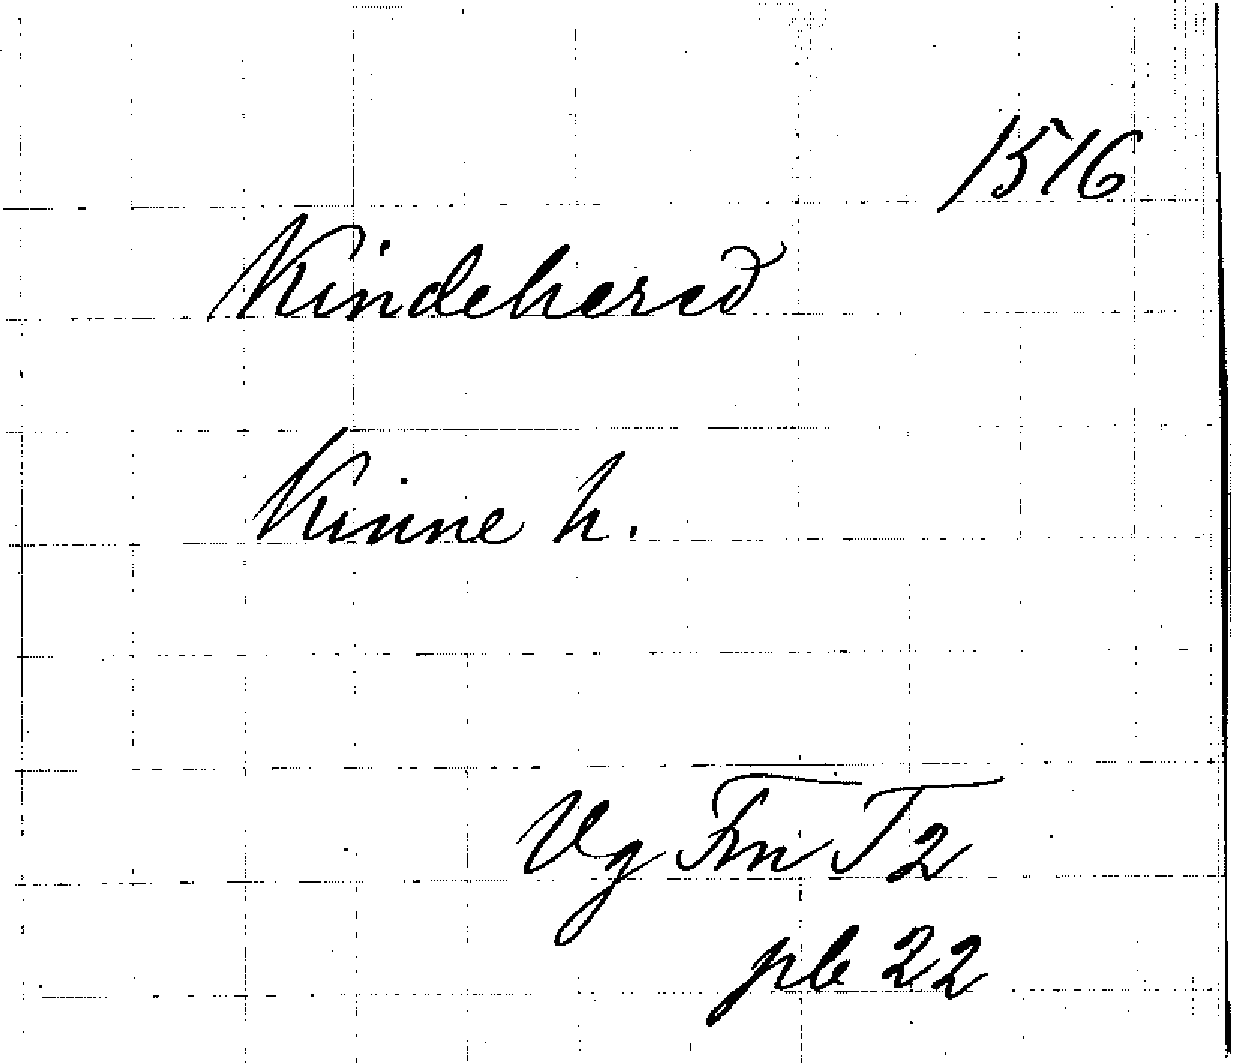 1516
Kindehered
Kinne h.
Vg Fm T 2
pb 22